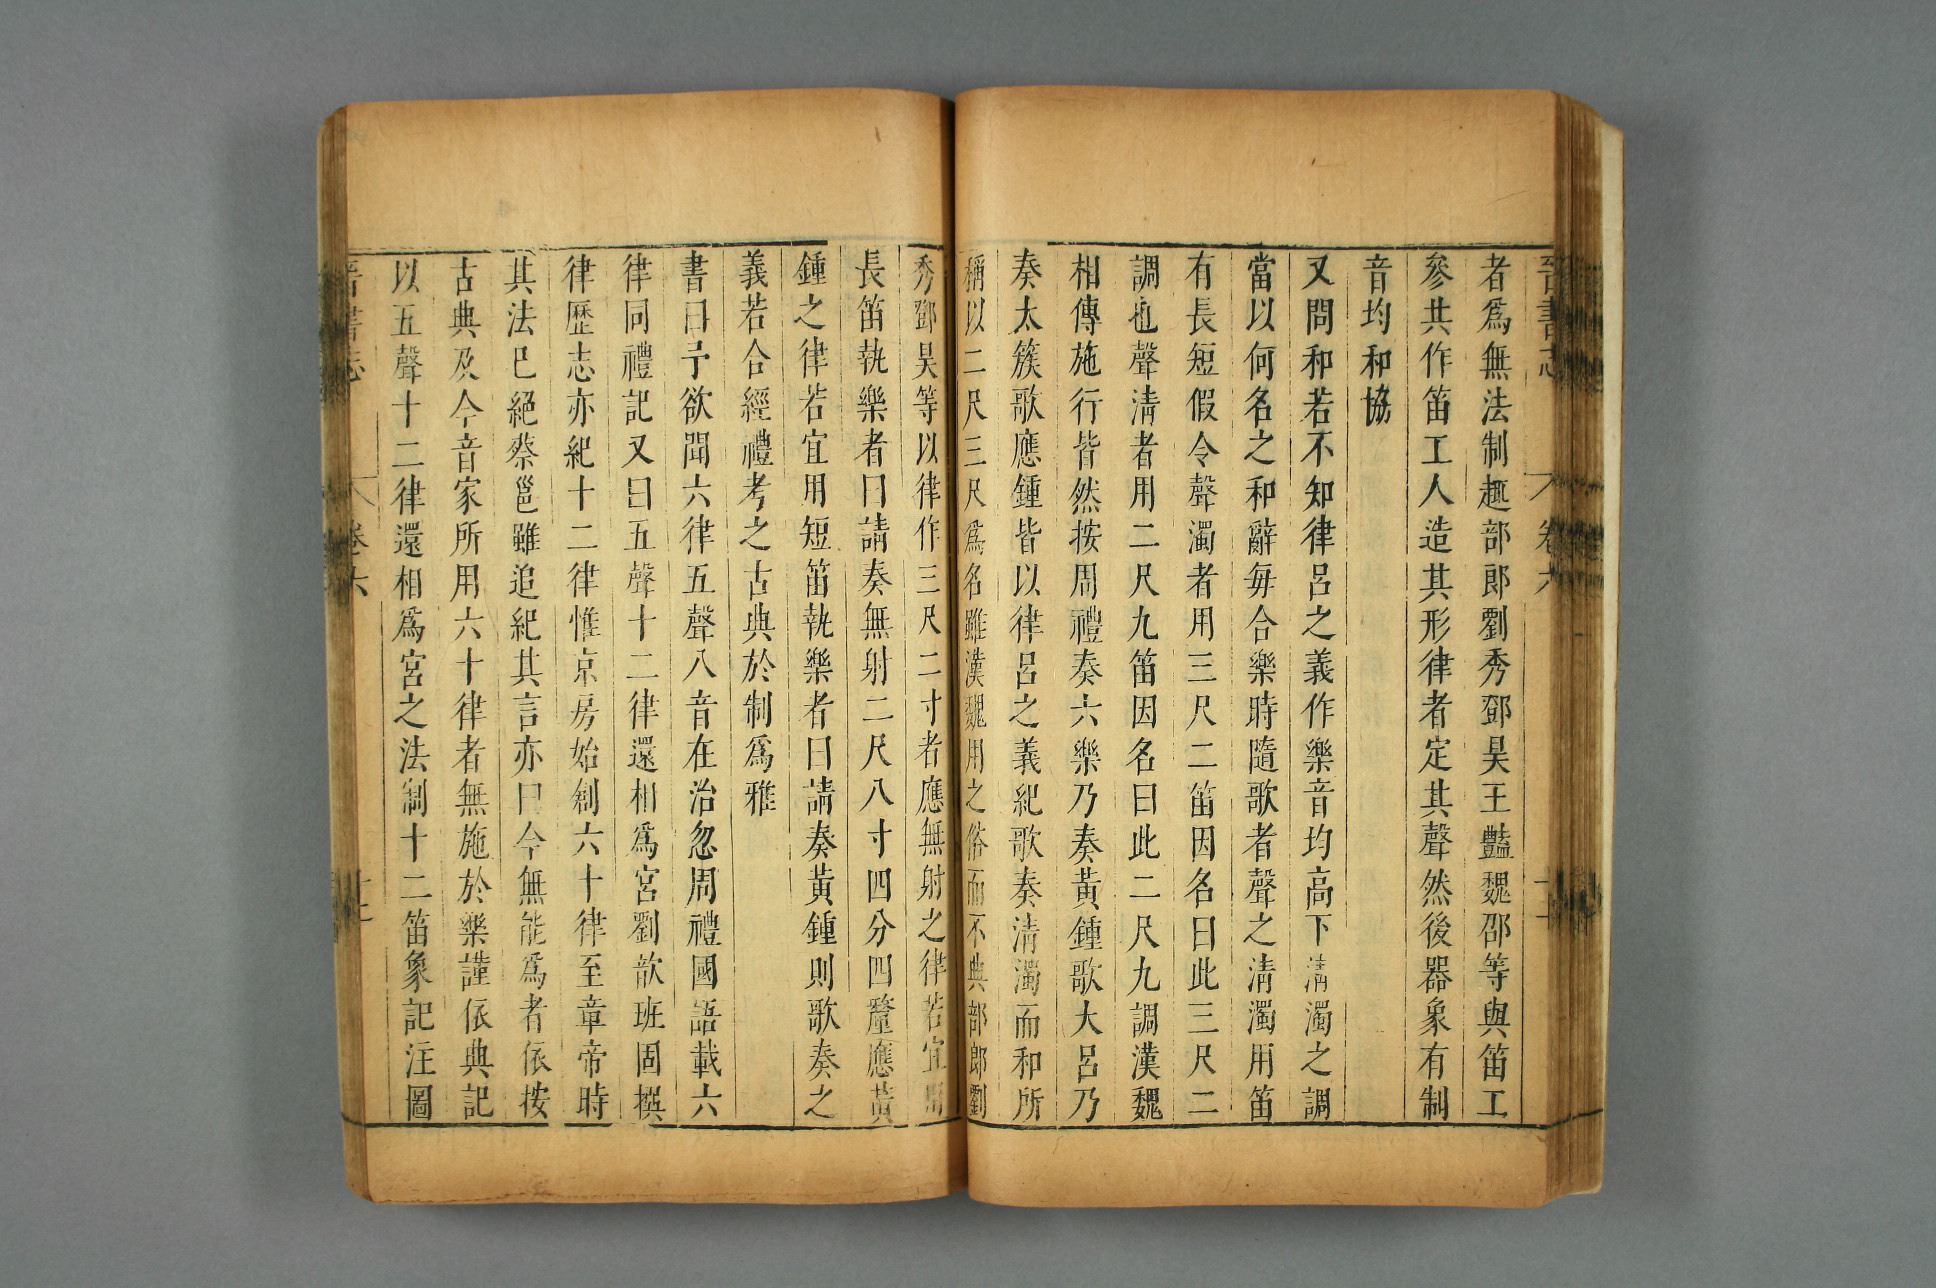 晉書志 卷六
者爲無法制趣部郎劉秀鄧昊王豔魏邵等與笛工
參共作笛工人造其形律者定其聲然後器象有制
音均和協
又問和若不知律呂之義作樂音均高下清濁之調
當以何名之和辭每合樂時隨歌者聲之清濁用笛
有長短假令聲濁者用三尺二笛因名曰此三尺二
調也聲清者用二尺九笛因名曰此二尺九調漢魏
相傳施行皆然按周禮奏六樂乃奏黃鍾歌大呂乃
奏太簇歌應鍾皆以律呂之義紀歌奏清濁而和所
稱以二尺三尺爲名雖漢魏用之俗而不典部郎劉
秀鄧昊等以律作三尺二寸者應無射之律若宜用
長笛執樂者曰請奏無射二尺八寸四分四釐應黃
鍾之律若宜用短笛執樂者曰請奏黃鍾則歌奏之
義若合經禮考之古典於制爲雅
書曰予欲聞六律五聲八音在治忽周禮國語載六
律同禮記又曰五聲十二律還相爲宮劉歆班固撰
律歷志亦紀十二律惟京房始創六十律至章帝時
其法已絕蔡邕雖追紀其言亦曰今無能爲者依按
古典及今音家所用六十律者無施於樂謹依典記
以五聲十二律還相爲宮之法制十二笛象記注圖
晉書志 卷六